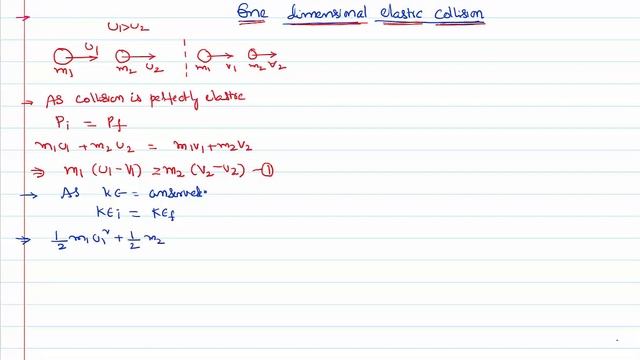 → One dimensional elastic collision
U1>U2
U1 U2 V1 V2
m1 m2 m1 m2
→ As collision is perfectly elastic
Pi = Pf
m1U1 + m2U2 = m1V1 + m2V2
⇒ m1 (U1 - V1) = m2 (V2 - U2) - ①
→ As KE = conserved.
KEi = KEf
⇒ 1/2 m1U1² + 1/2 m2